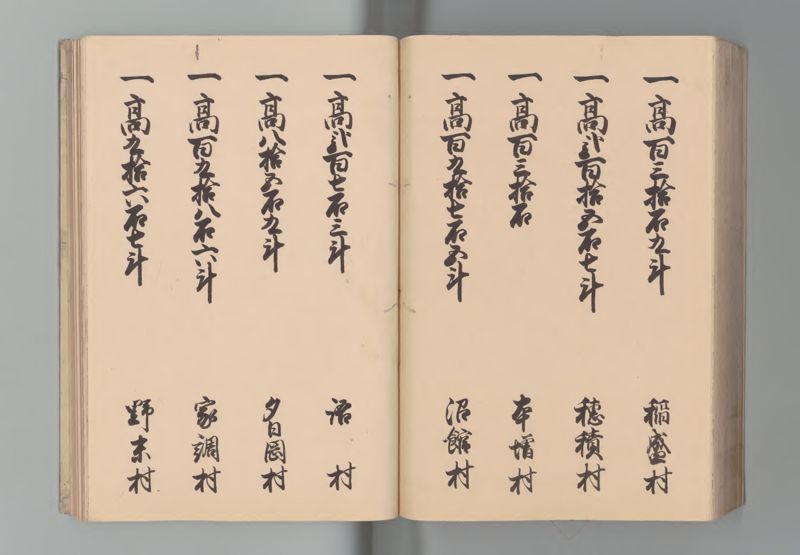 一高百三拾石九斗 稲盛村
一高弐百拾五石七斗 穂積村
一高百三拾石 本増村
一高百九拾七石五斗 沼館村
一高弐百七石三斗 沼村
一高八拾五石九斗 夕日岡村
一高百九拾八石六斗 家調村
一高九拾六石七斗 野末村